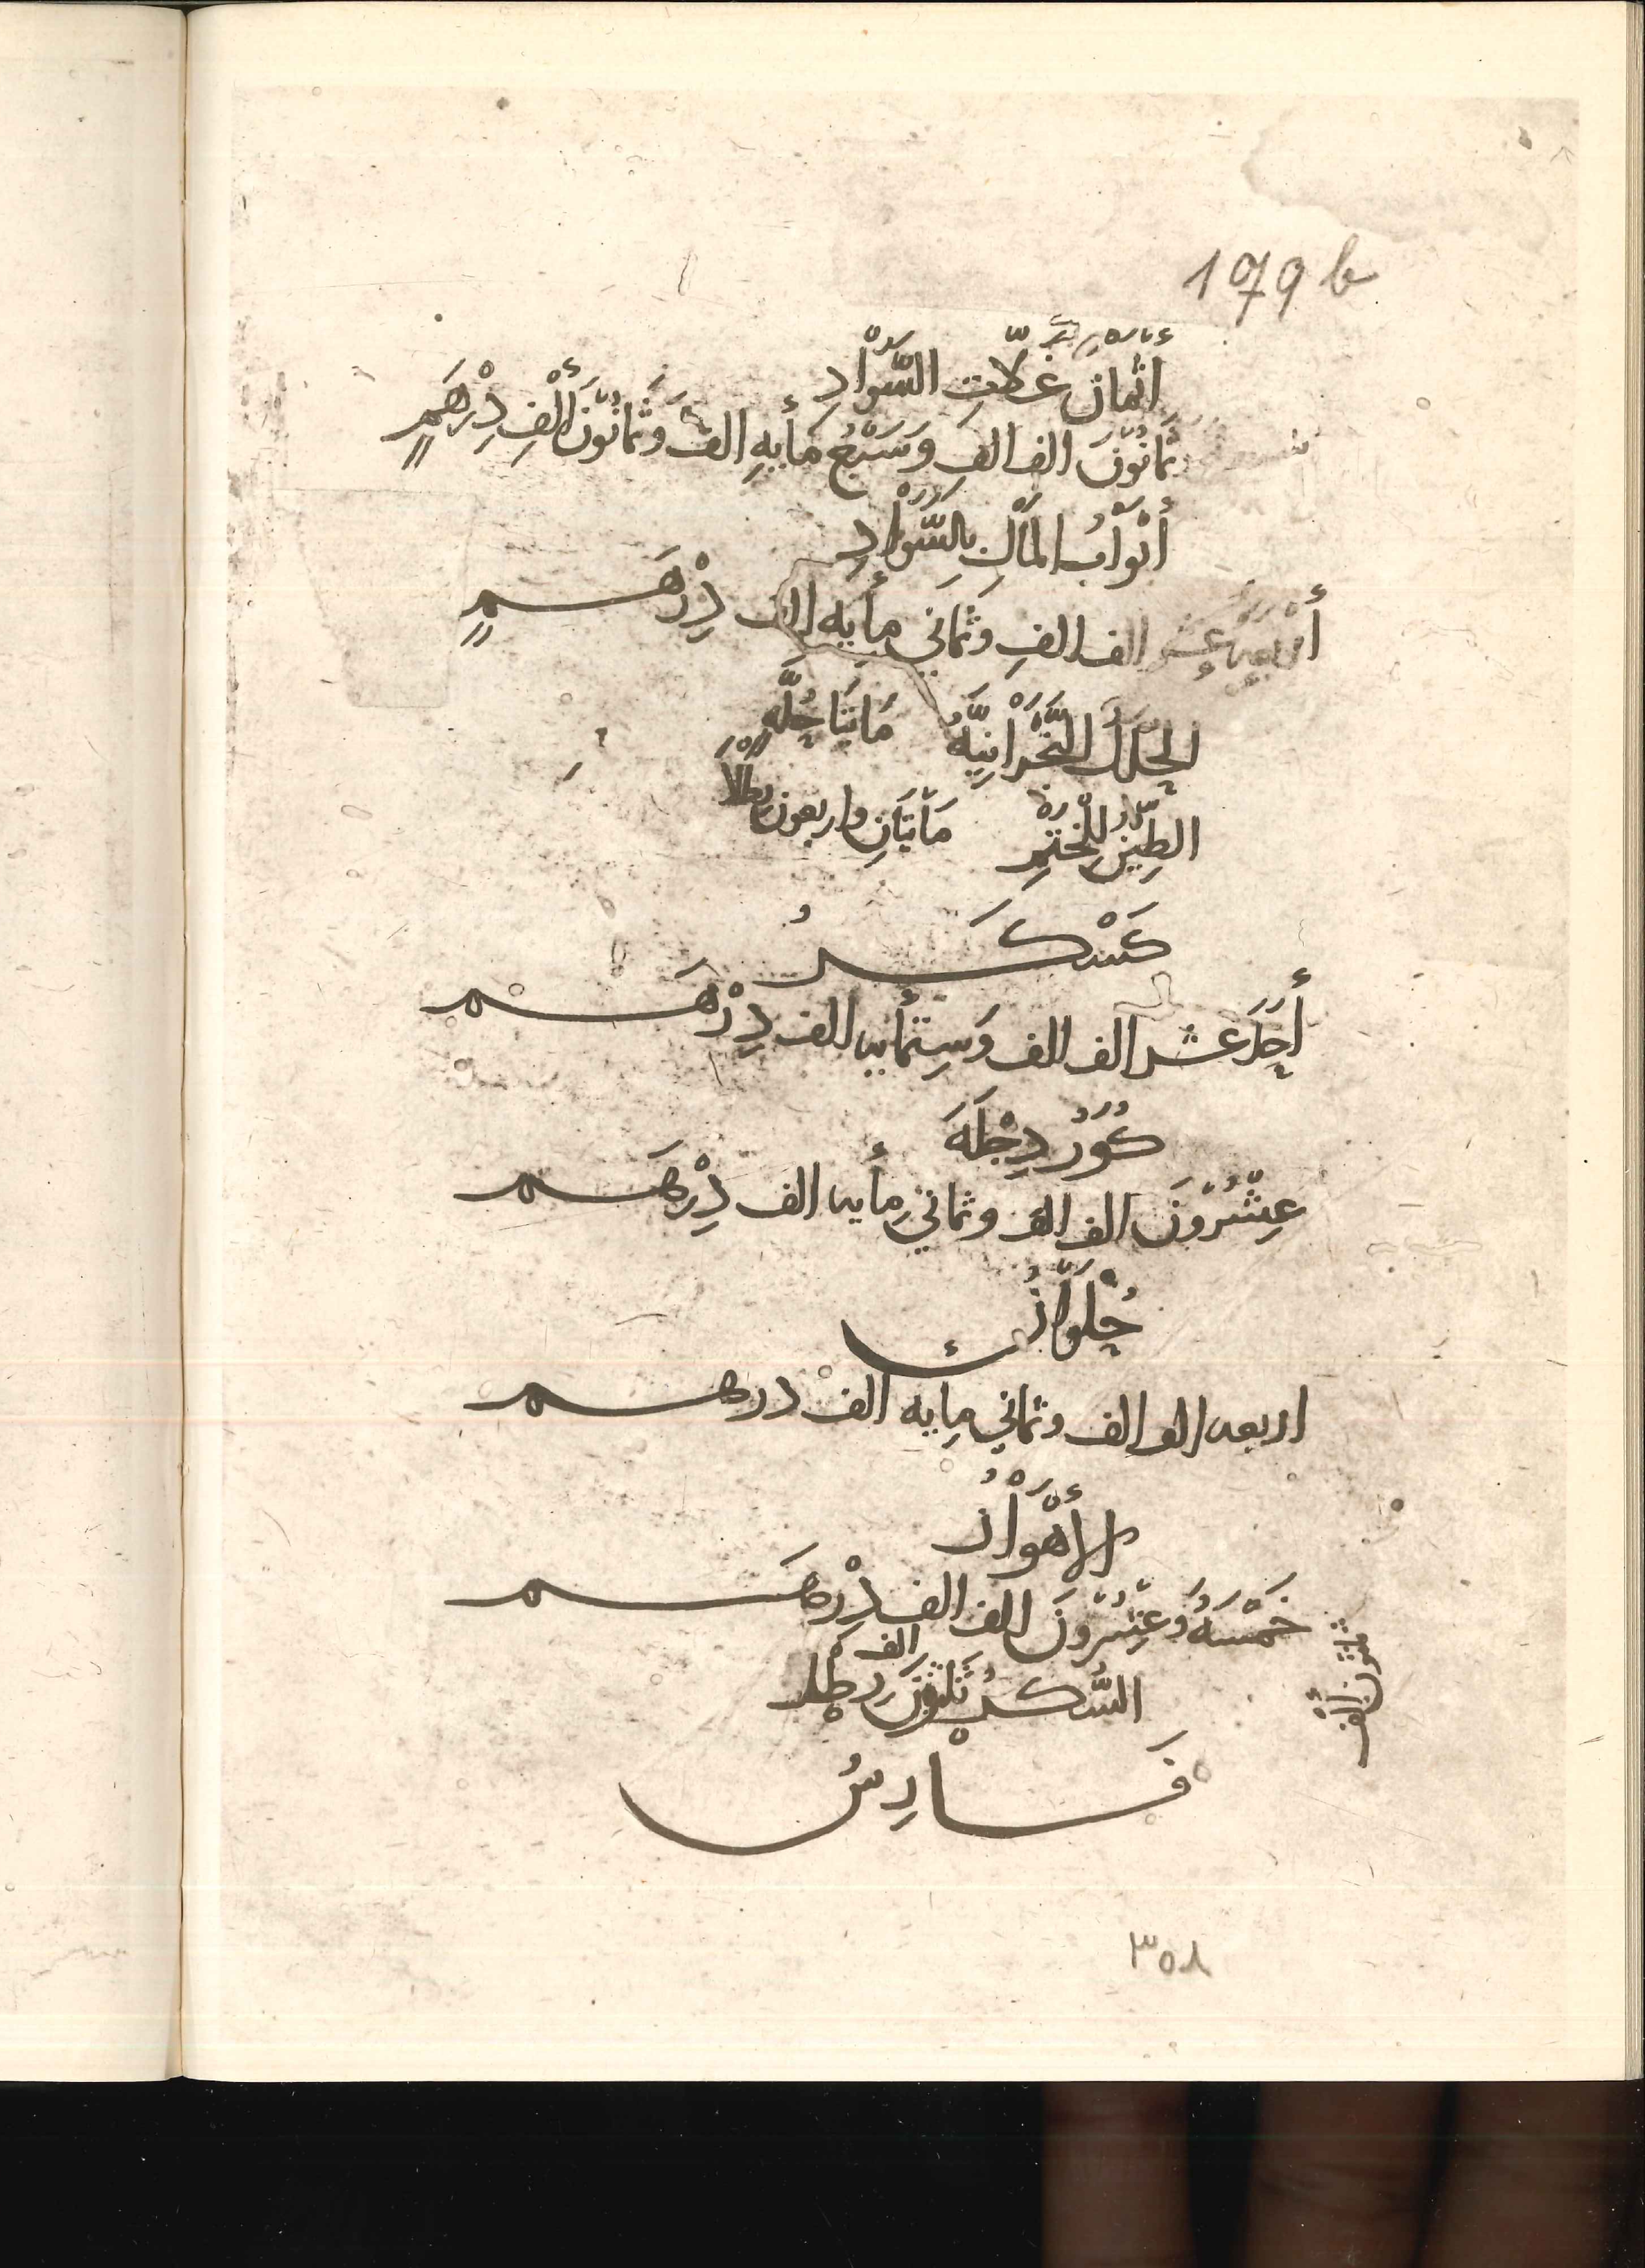 179 b
اثمان غلّاتِ السَّوَادِ
ثَمَانُوْنَ الف الفِ وَسَبْعُ مَأيهِ الفٍ وَثَمَانُوْنَ أَلْفِ دِرْهَمٍ
أَبْوَابُ المَالِ بِالسَّوَادِ
أَرْبَعَهَ عَشَر الف الفِ وثَمَاني مِأيه الف دِرْهَمٍ
الحُلَلُ النَّجْرَانِيَّهُ مَايتَا حُلَّهٍ
الطِيْن لِلْخَتْمِ مَأيتَانِ واربعون رِطْلاً
كَسْكَرُ
أَحَدَ عشر الف الف وَسِتمأيه الف دِرْهَم
كُوَرُ دِجْلَهَ
عِشْرُوْنَ الف الف وثماني مِأيه الف دِرْهَم
حُلْوَانُ
اربعه الف الف وثماني مِايه الف درهم
الأَهْوَازُ
خَمْسَهُ وَعِشْرُوْنَ الف الف دِرْهَم
الف
السُّكرُ ثَلثُوْنَ رِطْل
ثلثون ألف
فَارِسُ
٣٥٨